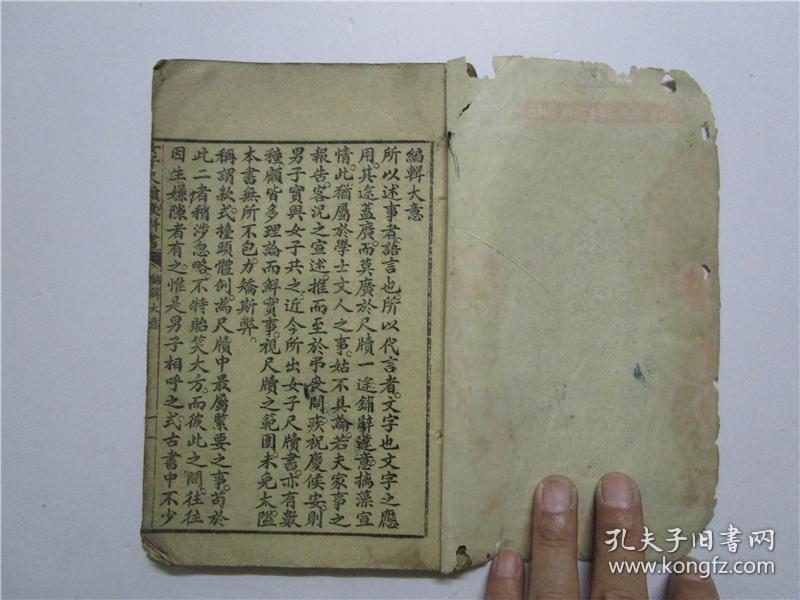 編輯大意
所以述事者。語言也。所以代言者。文字也文字之應
用。其途蓋廣。而莫廣於尺牘一途。鋪辭達意。摛藻宣
情。此猶屬於學士文人之事。姑不具論。若夫家事之
報告。客況之宣述。推而至於弔喪問疾。祝慶候安。則
男子實與女子共之。近今所出女子尺牘書。亦有數
種。顧皆多理論而鮮實事。視尺牘之範圍。未免太隘
本書無所不包。力矯斯弊。
稱謂款式。擡頭體例。為尺牘中最屬緊要之事。苟於
此二者稍涉忽略。不特貽笑大方。而彼此之間。往往
因生嫌隙者有之。惟是男子相呼之式。古書中不少
女子尺牘教科書
編輯大意
一
孔夫子旧书网
www.kongfz.com